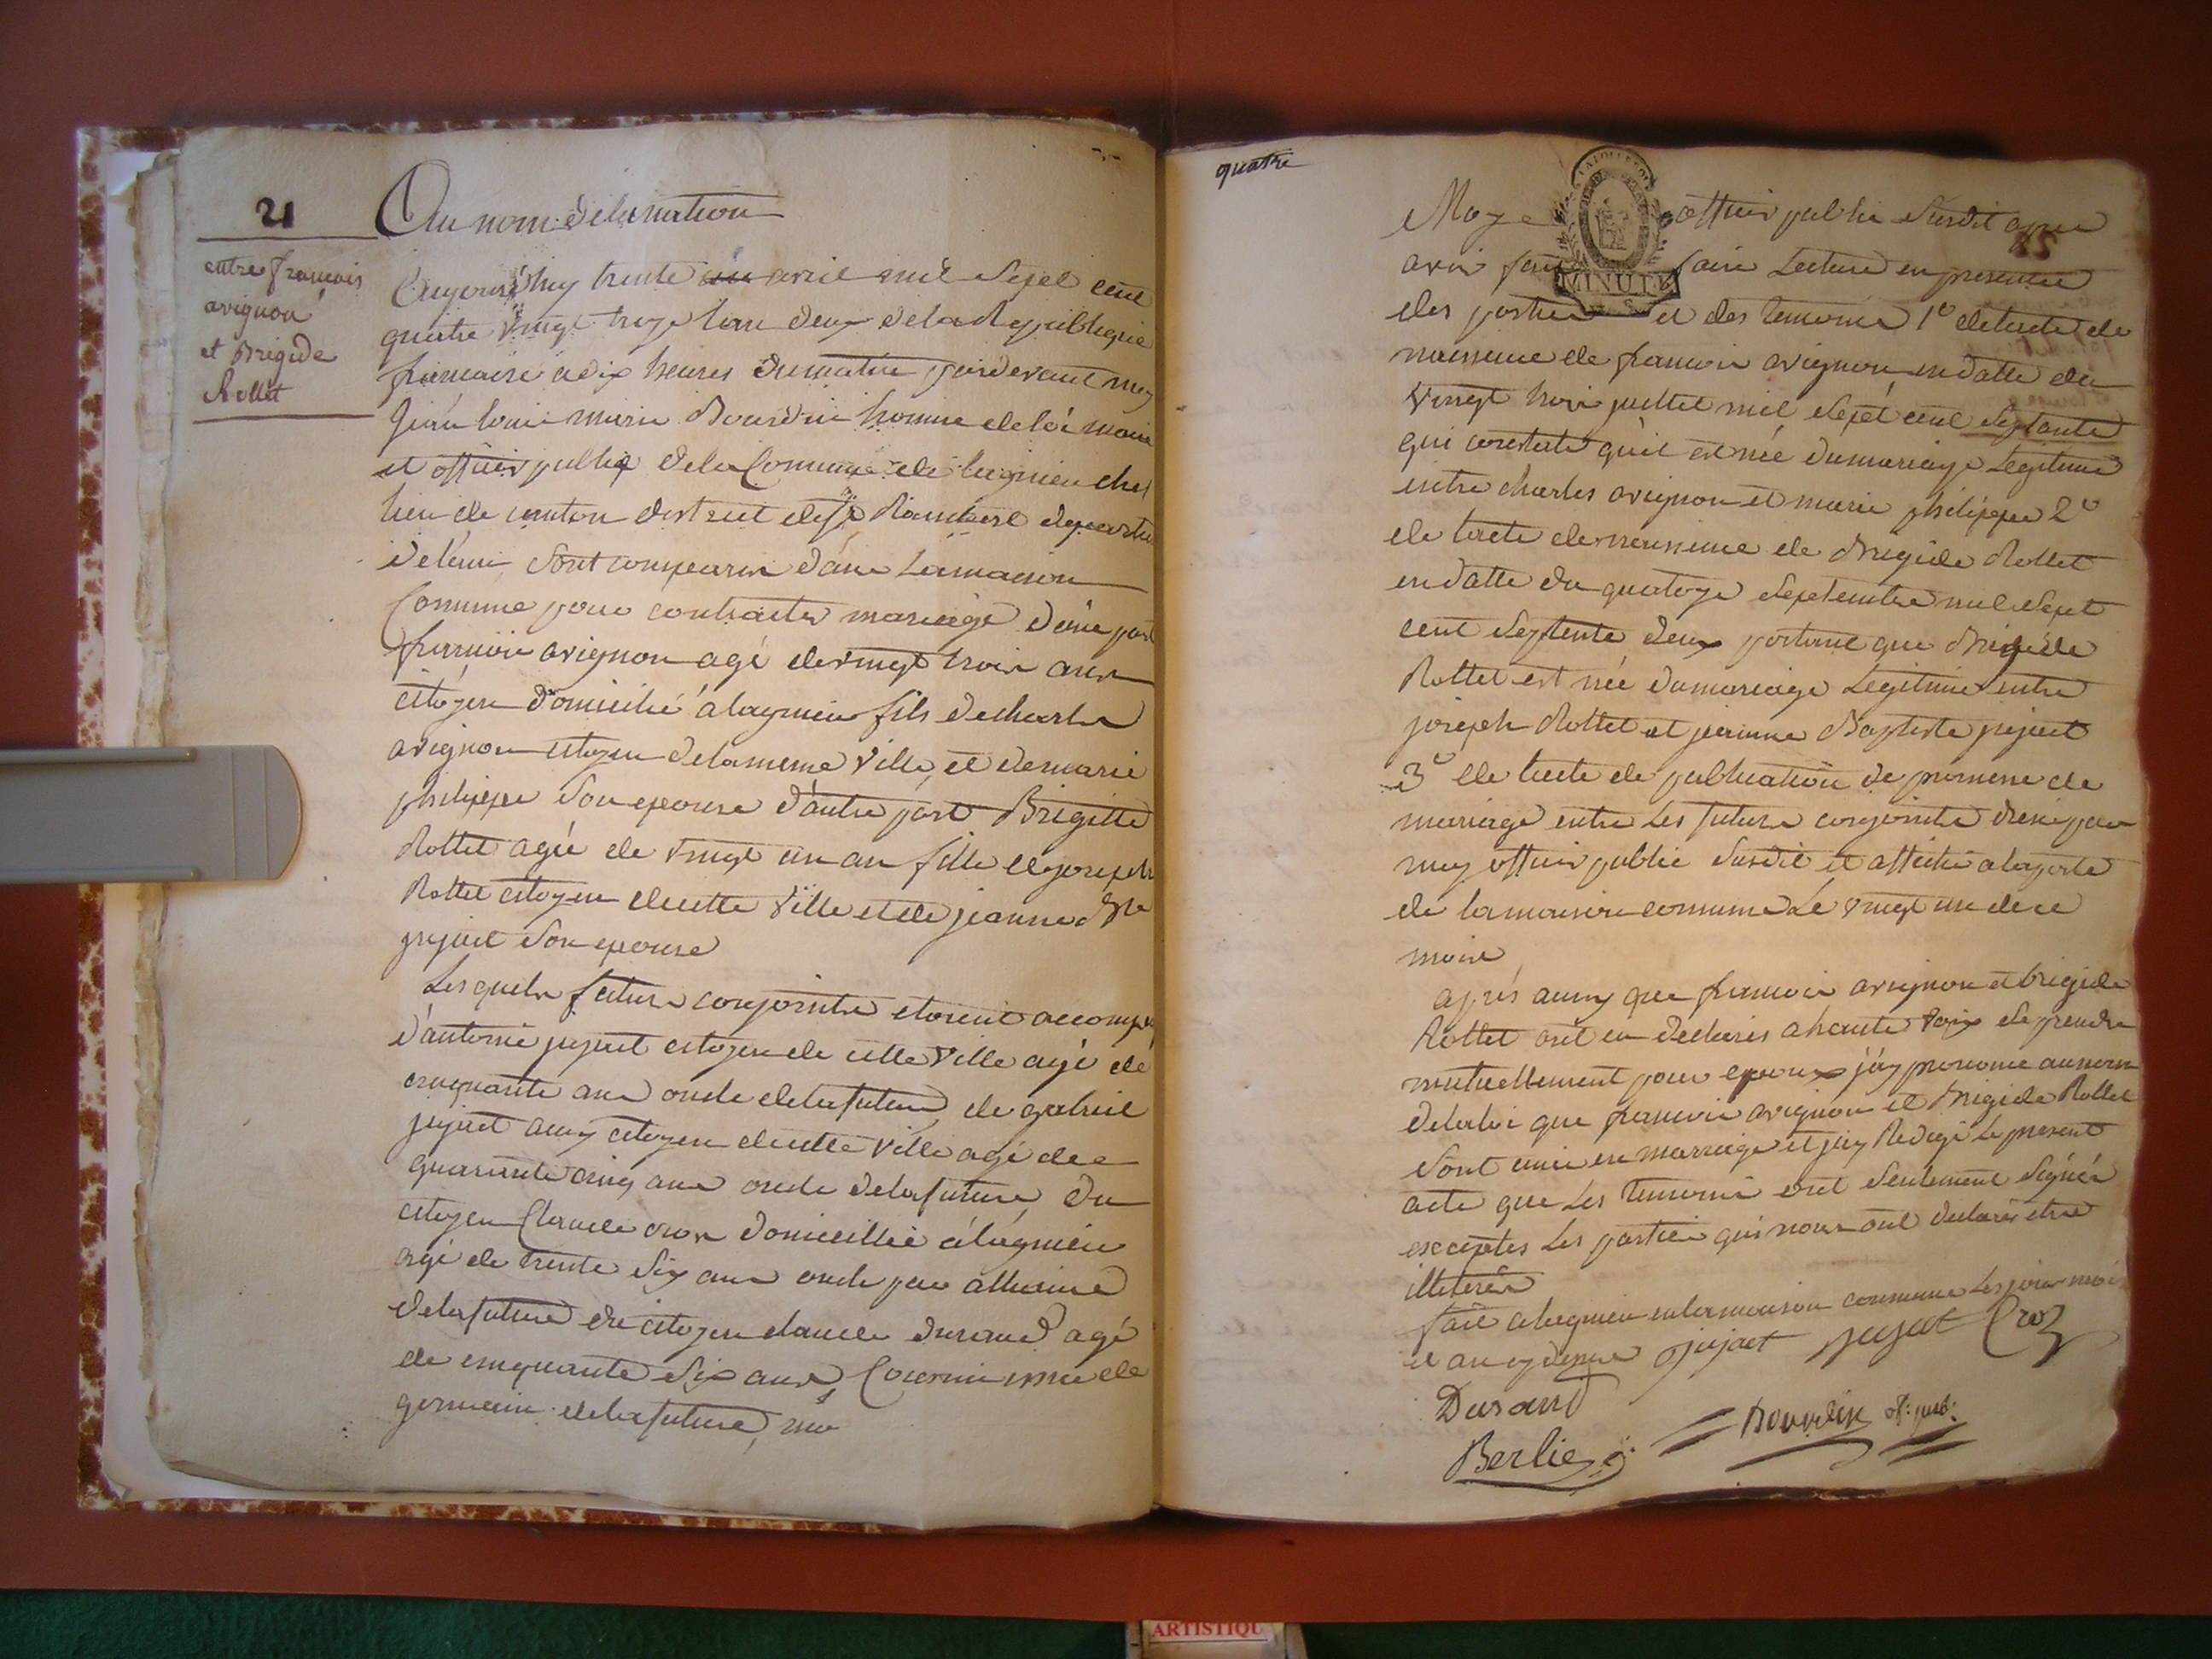 21
entre françois
avignon
et Brigide
Rollet
Au nom de la nation
Aujourd'huy trente avril mil Sept cent
quatre vingt treize lan deux de la Republique
francaise a dix heures du matin pardevant moy
Jean louis marie Bourdin homme de loi maire
et officier public de la Commune de lagnieu chef
lieu de canton district de St Rambert departe
de lain Sont comparus dans La maison
Commune pour contracter mariage d'une part
francois avignon agé de vingt trois ans
citoyen domicilié a lagnieu fils de charles
avignon citoyen de la meme ville, et de marie
philippe Son epouse d'autre part Brigitte
Rollet agée de vingt un an fille de joseph
Rollet citoyen de cette ville et de jeanne Bte
jujat Son epouse
Les quels futurs conjoints etoient accomp
d'antoine jujat citoyen de cette ville agé de
cinquante ans oncle de la future, de gabriel
jujat aussy citoyen de cette ville agé de
quarante cinq ans oncle de la future, du
citoyen Claude cros domicillié a lagnieu
agé de trente Six ans oncle par alliance
de la future du citoyen claude durand agé
de cinquante Six ans, Cousin issu de
germain de la future, mo
quatre
MINUTE
15
Moy officier public Susdit apres
avoir fait faire Lecture en presence
des parties et des temoins 1° de lacte de
naissance de francois avignon en datte du
vingt trois juillet mil Sept cent Septante
qui constate qu'il est née du mariage Legitime
entre charles avignon et marie philippe 2°
de lacte de naissance de Brigide Rollet
en datte du quatorze Septembre mil Sept
cent Septente deux portant que Brigide
Rollet est née du mariage Legitime entre
joseph Rollet et jeanne Baptiste jujat
3° de lacte de publication de promesse de
mariage entre Les futurs conjoints dressé par
moy officier public Susdit et affiché a la porte
de la maison commune Le vingt un de ce
mois
après aussy que francois avignon et brigide
Rollet ont eu declarés a haute voix Se prendre
mutuellement pour epoux j'ay prononcé au nom
de la loi que francois avignon et Brigide Rollet
Sont unis en mariage et j'ay Redigé Le present
acte que Les temoins ont Seulement Signés
exceptés Les parties qui nous ont declarés etre
illeterés
fait a lagnieu en la maison commune Les jour mois
et an cy dessus jujat jujat Croz
Durand
Bourdin of: pub:
Berlie